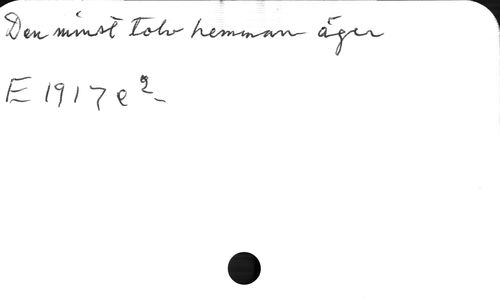 Den minst tolv hemman äger
E 1917 e 2.